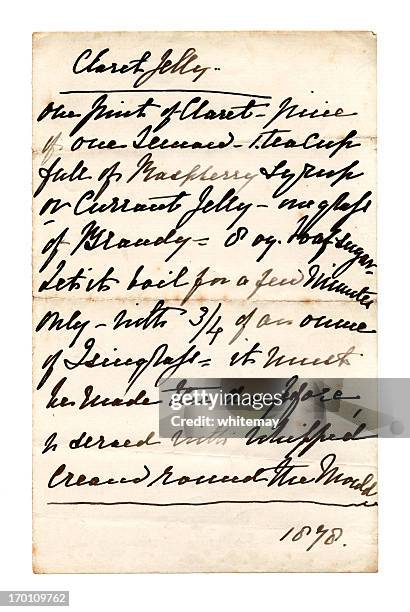 Claret Jelly.
One pint of Claret - juice
of one Lemon - teacup
full of Raspberry Syrup
or Currant Jelly - one glass
of Brandy = 8 oz. loaf sugar -
Let it boil for a few Minutes
only - with 3/4 of an ounce
of Isinglass = it must
be made the day before,
& served with whipped
Cream round the Mould
1878.
iStock
Credit: whitemay
170109762